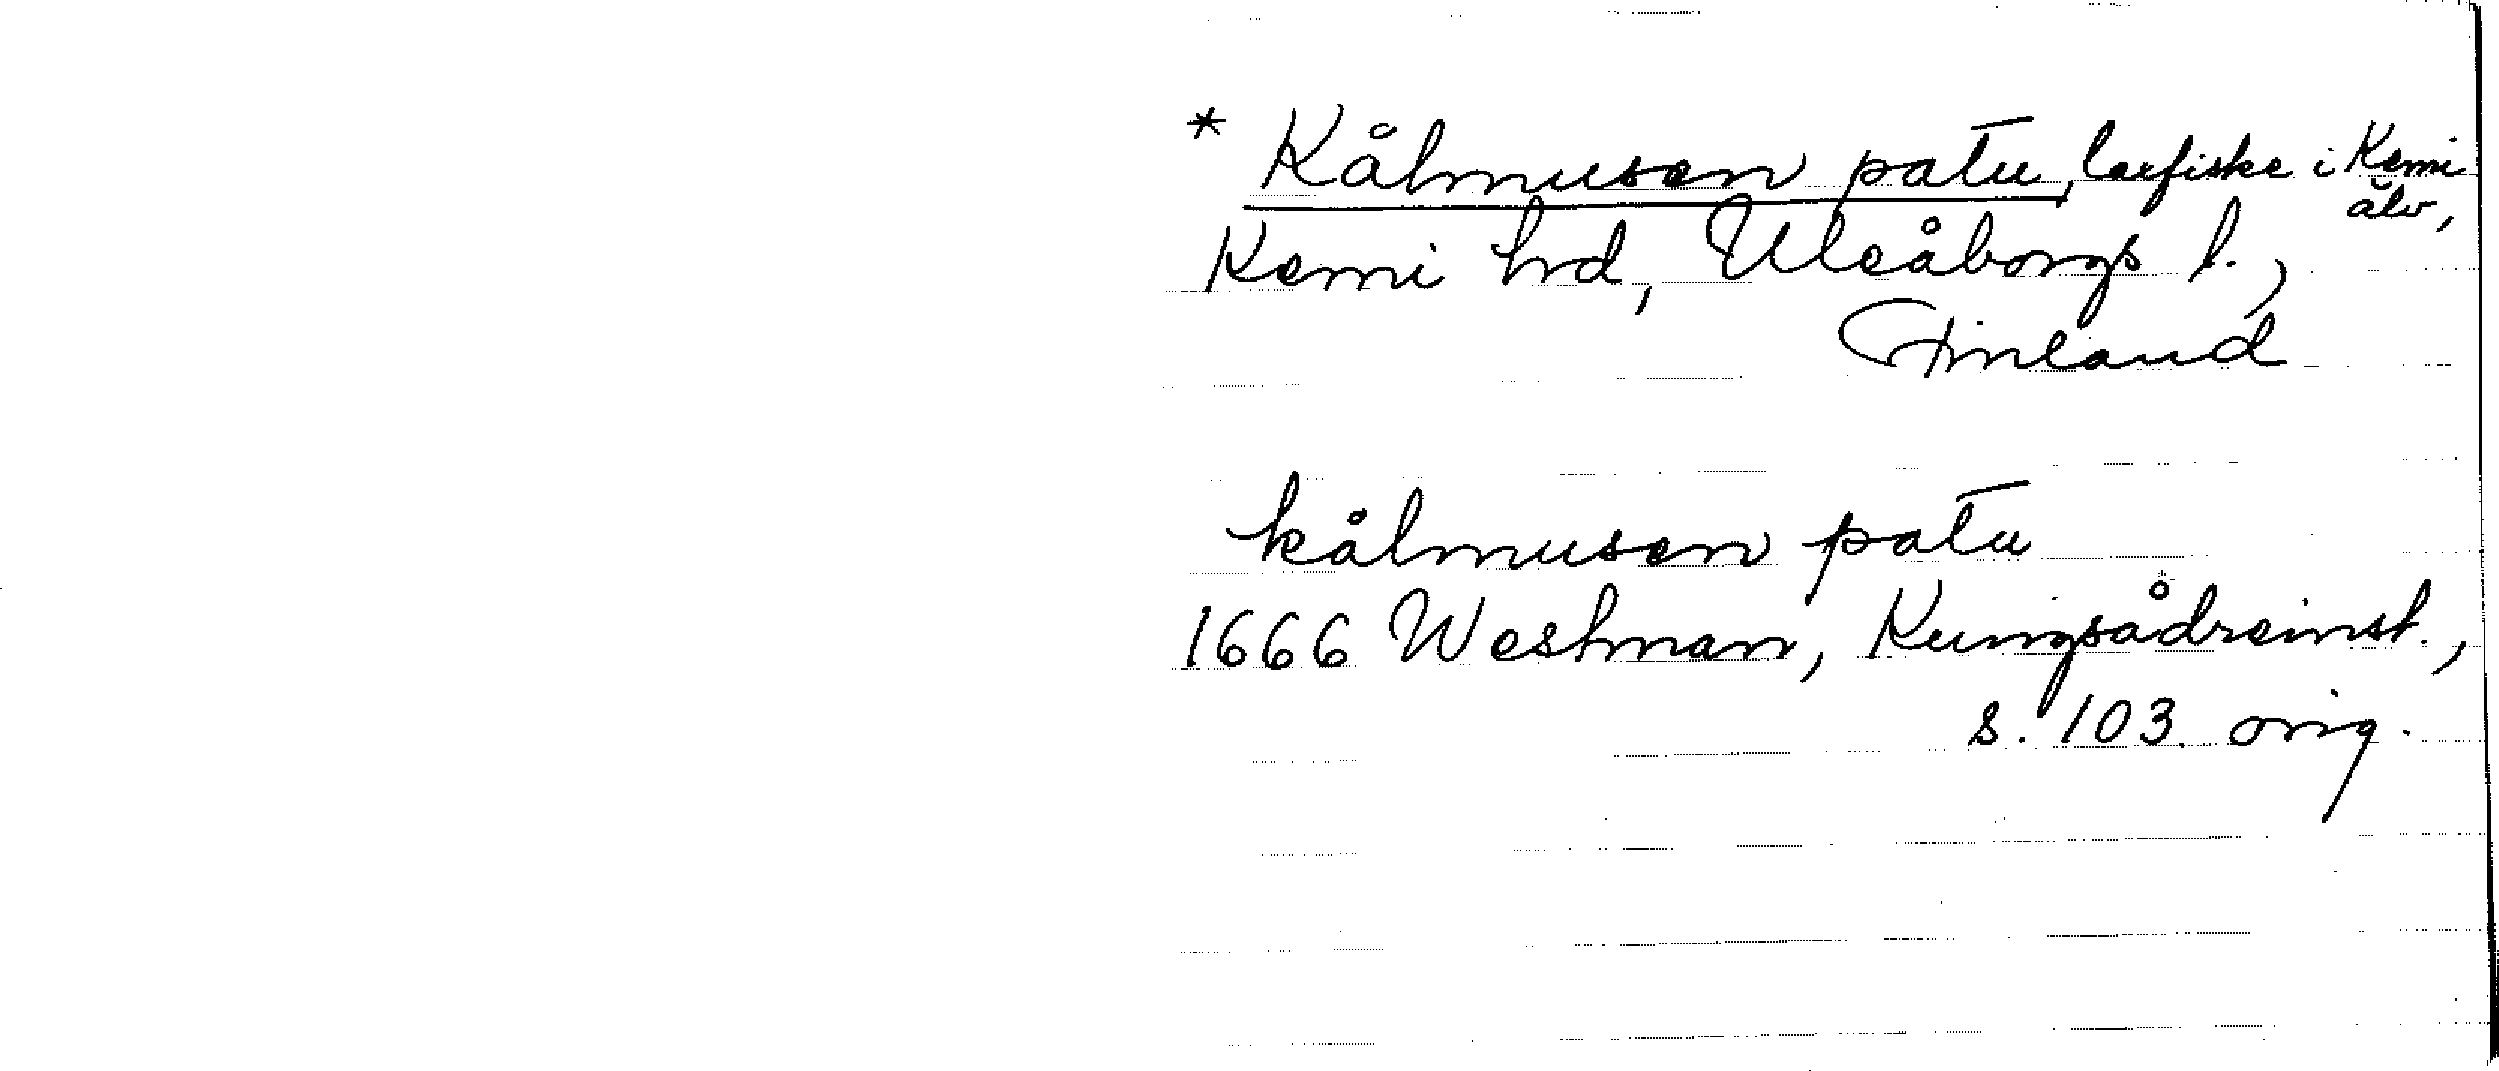 * Kålmusen patu, laxfiske i Kemi
älv,
Kemi hrd, Uleåborgs l.,
Finland
kålmusen patu
1666 Westman, Kungsådreinst.,
s. 103. orig.